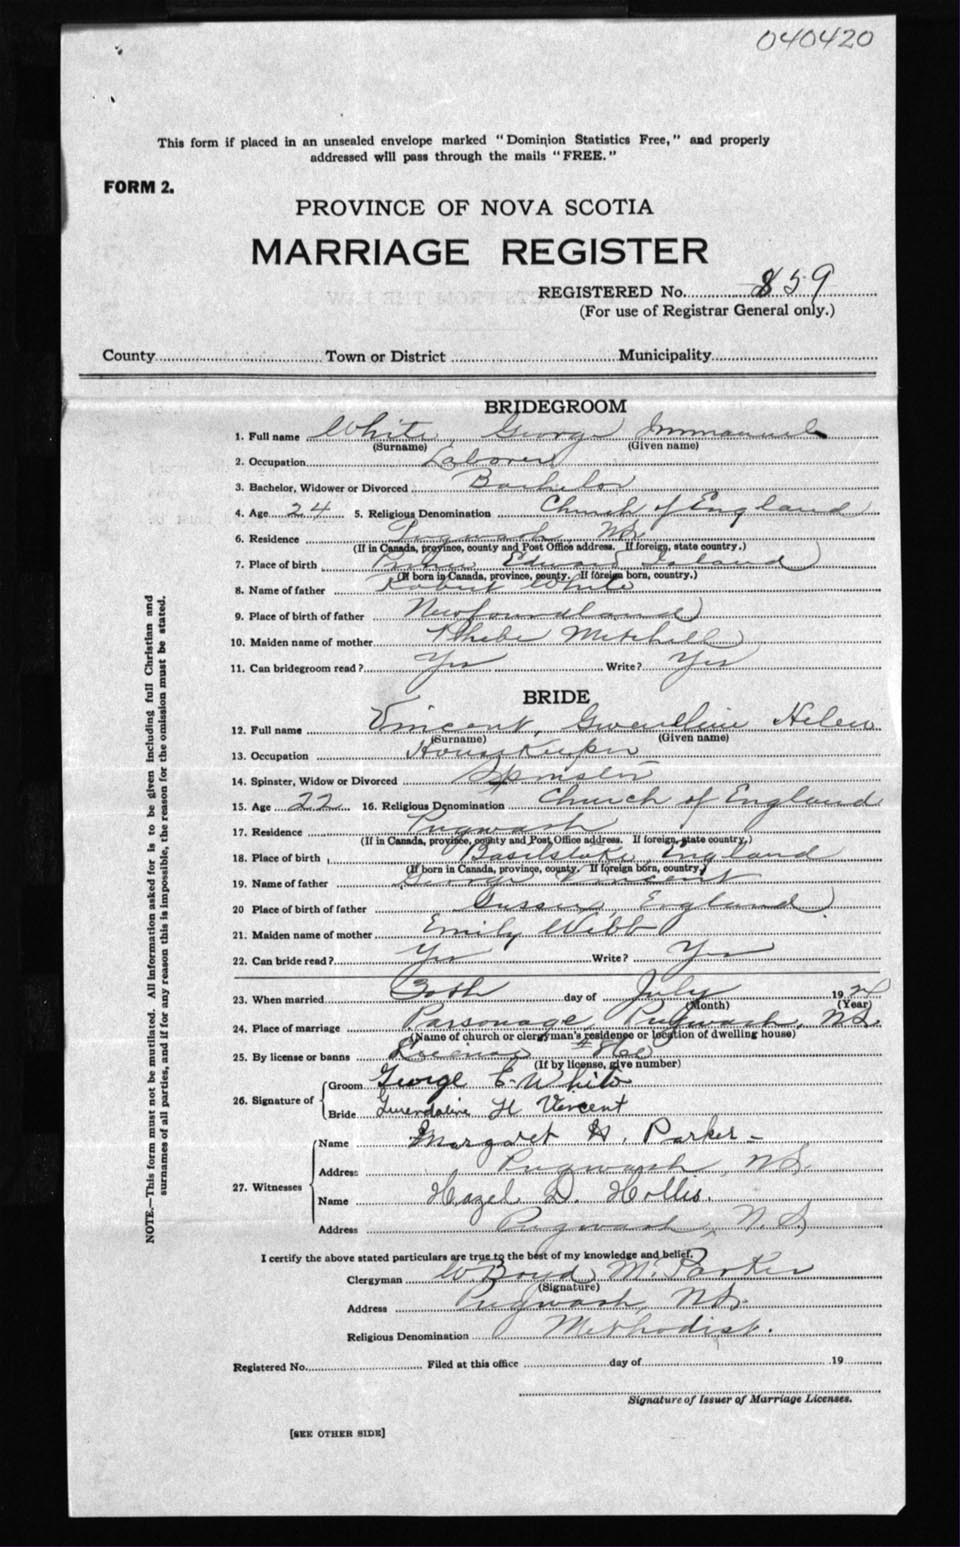 040420
This form if placed in an unsealed envelope marked "Dominion Statistics Free," and properly
addressed will pass through the mails "FREE."
FORM 2.
PROVINCE OF NOVA SCOTIA
MARRIAGE REGISTER
REGISTERED No. 859
(For use of Registrar General only.)
County Town or District Municipality
BRIDEGROOM
1. Full name White, George Immanuel
(Surname) (Given name)
2. Occupation Laborer
3. Bachelor, Widower or Divorced Bachelor
4. Age 24 5. Religious Denomination Church of England
6. Residence Pugwash NS
(If in Canada, province, county and Post Office address. If foreign, state country.)
7. Place of birth Prince Edward Island
(If born in Canada, province, county. If foreign born, country.)
8. Name of father Robert White
9. Place of birth of father Newfoundland
10. Maiden name of mother Phebe Mitchell
11. Can bridegroom read? Yes Write? Yes
BRIDE
12. Full name Vincent, Gwendline Helen
(Surname) (Given name)
13. Occupation Housekeeper
14. Spinster, Widow or Divorced Spinster
15. Age 22 16. Religious Denomination Church of England
17. Residence Pugwash
(If in Canada, province, county and Post Office address. If foreign, state country.)
18. Place of birth Basilstoke, England
(If born in Canada, province, county. If foreign born, country.)
19. Name of father George Vincent
20 Place of birth of father Sussex, England
21. Maiden name of mother Emily Webb
22. Can bride read? Yes Write? Yes
23. When married 30th day of July 192
(Month) (Year)
24. Place of marriage Parsonage, Pugwash, N.S.
(Name of church or clergyman's residence or location of dwelling house)
25. By license or banns License #
(If by license, give number)
26. Signature of Groom George E. White
Bride Gwendaline H Vincent
27. Witnesses Name Margaret H. Parker
Address Pugwash, N.S.
Name Hazel D. Hollis.
Address Pugwash, N.S.
I certify the above stated particulars are true to the best of my knowledge and belief.
Clergyman W. Boyd M. Parker
(Signature)
Address Pugwash, N.S.
Religious Denomination Methodist.
Registered No. Filed at this office day of 19
Signature of Issuer of Marriage Licenses.
[SEE OTHER SIDE]
NOTE.—This form must not be mutilated. All information asked for is to be given including full Christian and
surnames of all parties, and if for any reason this is impossible, the reason for the omission must be stated.